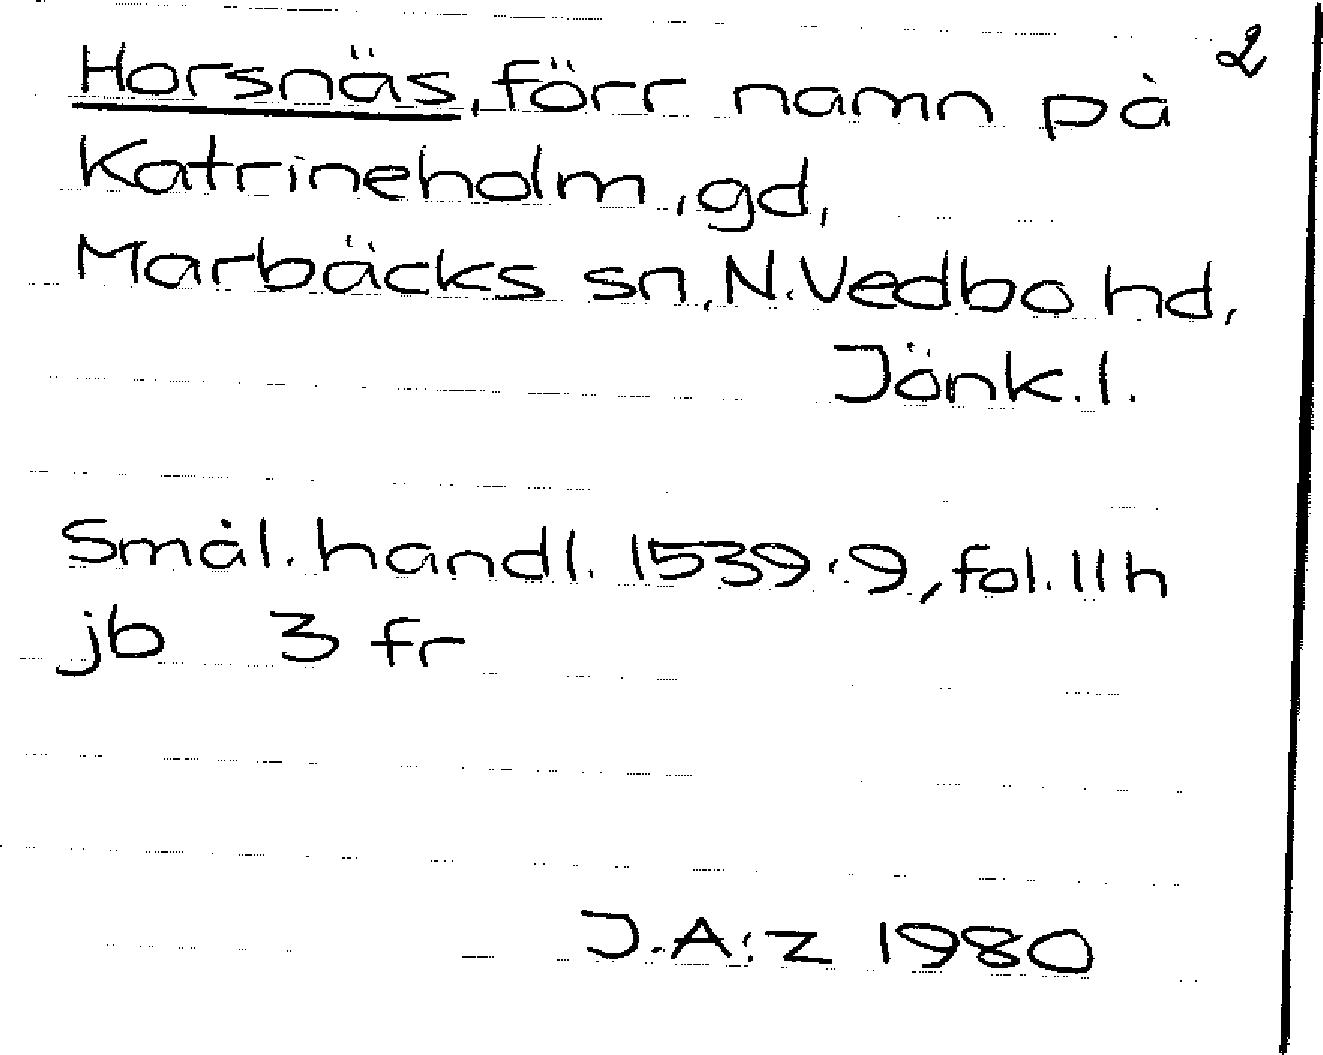 2
Horsnäs, förr namn på
Katrineholm, gd,
Marbäcks sn, N. Vedbo hd,
Jönk. l.
Smål. handl. 1539:9, fol. 11 h
jb 3 fr
J.A:z 1980